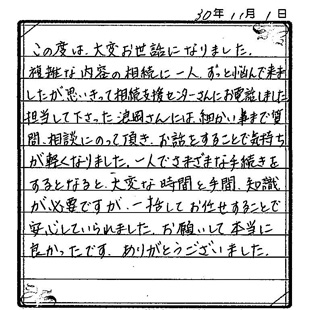 30年 11月 1日
この度は、大変お世話になりました。
複雑な内容の相続に一人、ずっと悩んで来ま
したが思いきって相続支援センターさんにお電話しました
担当して下さった浪岡さんには、細かい事まで質
問、相談にのって頂き、お話をすることで気持ち
が軽くなりました。一人でさまざまな手続きを
するとなると、大変な時間と手間、知識
が必要ですが、一括してお任せすることで
安心していられました。お願いして本当に
良かったです。ありがとうございました。